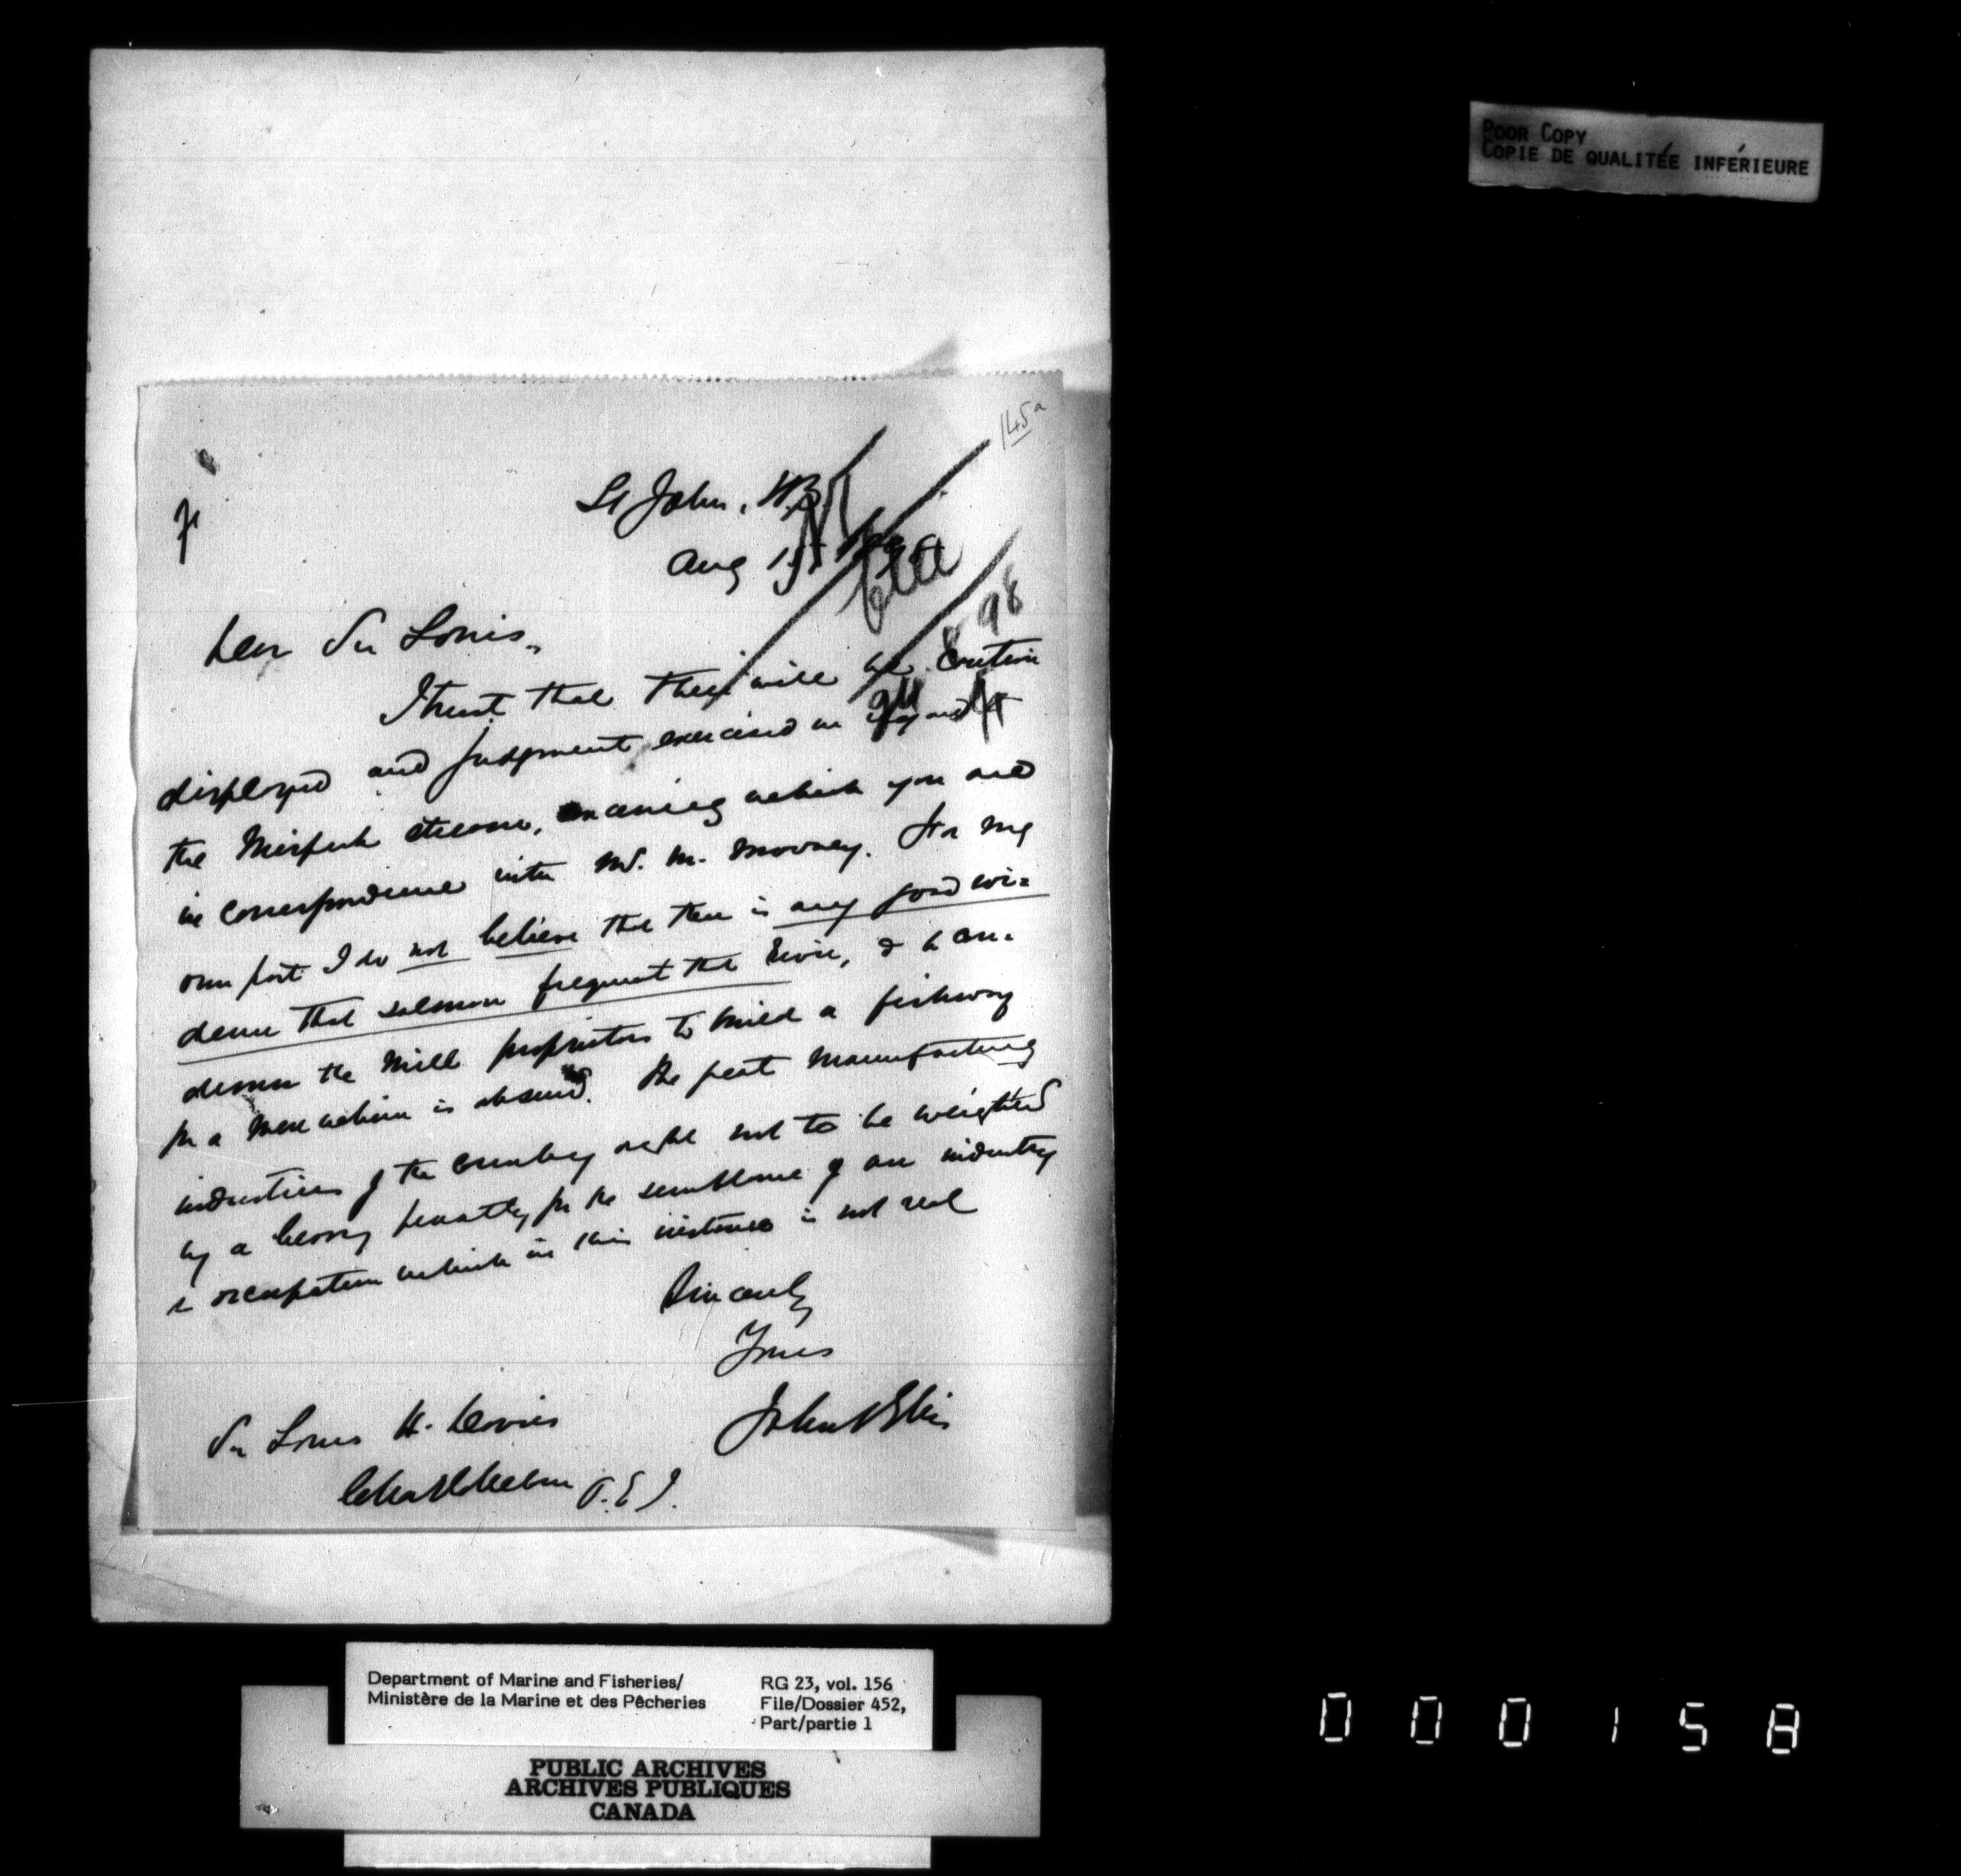 POOR COPY
COPIE DE QUALITÉE INFÉRIEURE
145a
St John, N.B.
Aug 1st
98
Dear Sir Louis,
I trust that they will be Caution
displayed and judgment exercised in regard to
the Mispeck stream, concerning which you are
in correspondence with Mr. M. Mooney. For my
own part I do not believe that there is any good evi-
dence that salmon frequent the river, & to con-
demn the Mill proprietors to build a fishway
for a mere whim is absurd. The great Manufacturing
industries of the country ought not to be weighted
by a heavy penalty for the semblance of an industry
or occupation which in this instance is not real
Sincerely
Yours
John V Ellis
Sir Louis H. Davies
Charlottetown P.E.I.
Department of Marine and Fisheries/
Ministère de la Marine et des Pêcheries
RG 23, vol. 156
File/Dossier 452,
Part/partie 1
PUBLIC ARCHIVES
ARCHIVES PUBLIQUES
CANADA
000158